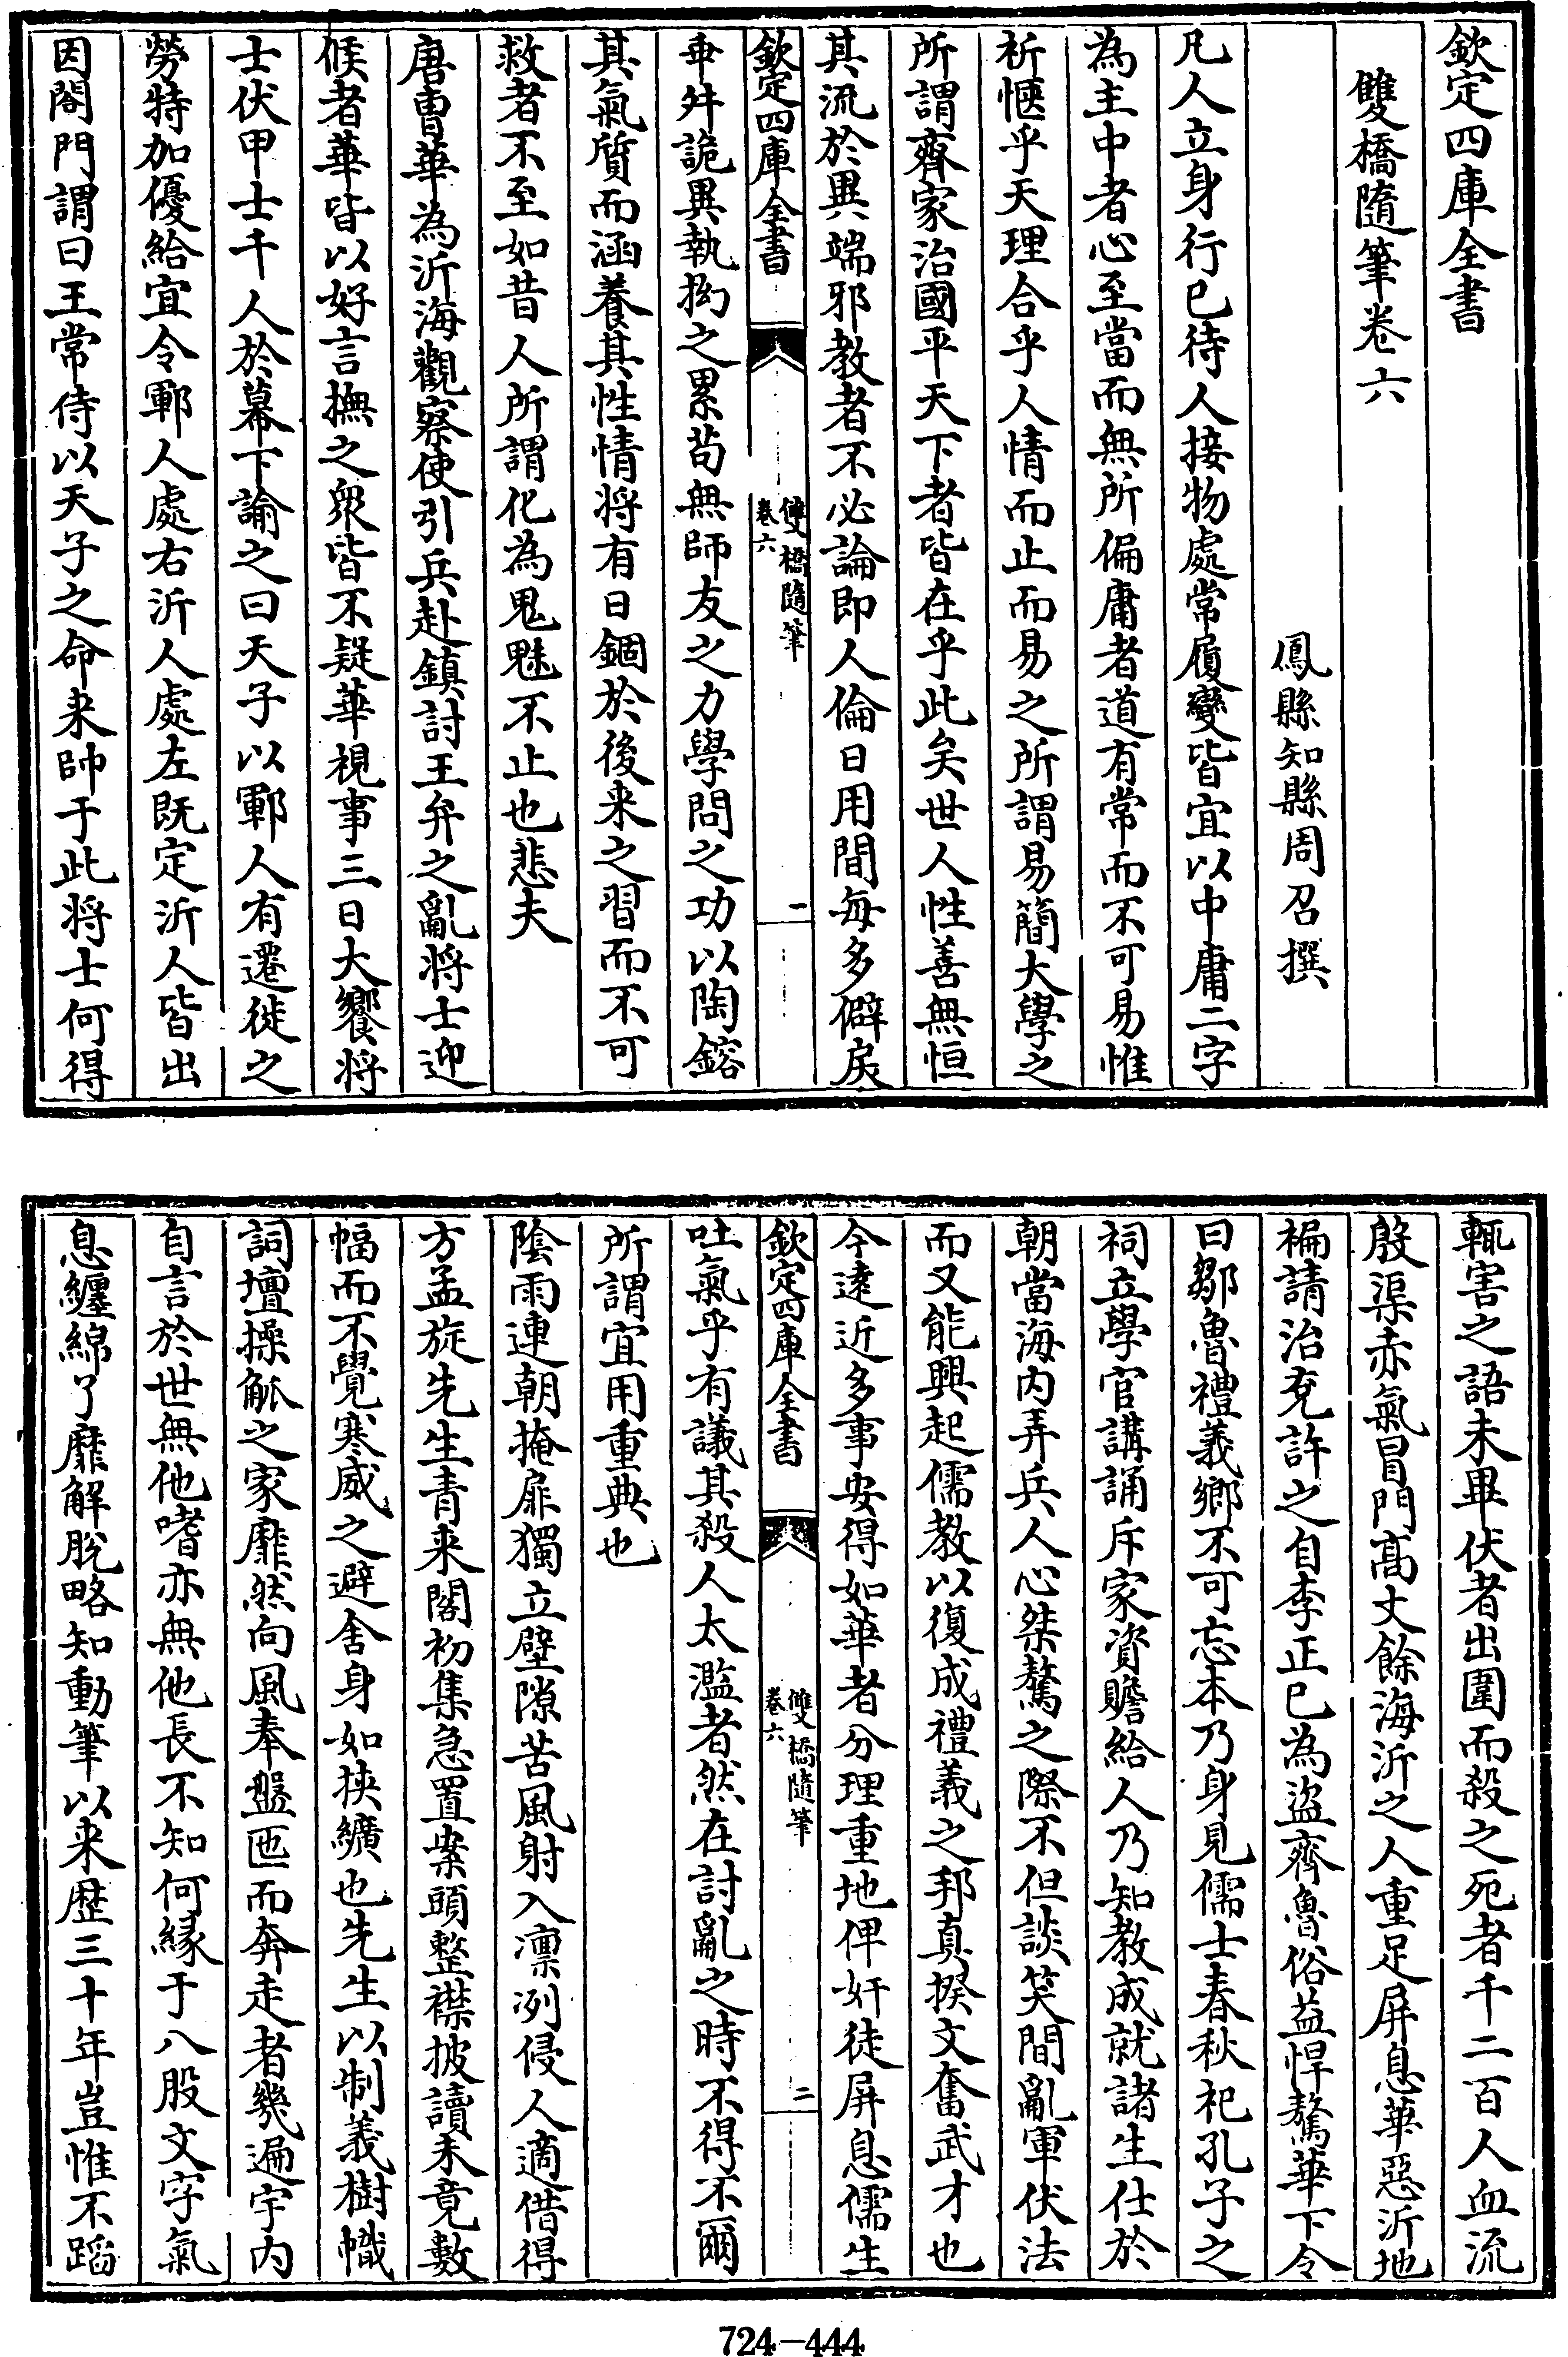 欽定四庫全書
雙橋隨筆卷六
鳳縣知縣周召撰
凡人立身行已待人接物處常履變皆宜以中庸二字
為主中者心至當而無所偏庸者道有常而不可易惟
析愜乎天理合乎人情而止而易之所謂易簡大學之
所謂齊家治國平天下者皆在乎此矣世人性善無恒
其流於異端邪教者不必論即人倫日用間每多僻戾
欽定四庫全書
雙橋隨筆
卷六
一
乖舛詭異執拗之累苟無師友之力學問之功以陶鎔
其氣質而涵養其性情將有日錮於後来之習而不可
救者不至如昔人所謂化為鬼魅不止也悲夫
唐曹華為沂海觀察使引兵赴鎮討王弁之亂將士迎
候者華皆以好言撫之衆皆不疑華視事三日大饗將
士伏甲士千人於幕下諭之曰天子以鄆人有遷徙之
勞特加優給宜令鄆人處右沂人處左既定沂人皆出
因閤門謂曰王常侍以天子之命来帥于此將士何得
輒害之語未畢伏者出圍而殺之死者千二百人血流
殷渠赤氣冒門高丈餘海沂之人重足屏息華惡沂地
褊請治兗許之自李正已為盜齊魯俗益悍驁華下令
曰鄒魯禮義鄉不可忘本乃身見儒士春秋祀孔子之
祠立學官講誦斥家資贍給人乃知教成就諸生仕於
朝當海内弄兵人心桀驁之際不但談笑間亂軍伏法
而又能興起儒教以復成禮義之邦真揆文奮武才也
今逺近多事安得如華者分理重地俾奸徒屏息儒生
欽定四庫全書
雙橋隨筆
卷六
二
吐氣乎有議其殺人太濫者然在討亂之時不得不爾
所謂宜用重典也
陰雨連朝掩扉獨立壁隙苦風射入凛冽侵人適借得
方孟旋先生青来閣初集急置案頭整襟披讀未竟數
幅而不覺寒威之避舍身如挾纊也先生以制義樹幟
詞壇操觚之家靡然向風奉盤匜而奔走者幾遍宇内
自言於世無他嗜亦無他長不知何緣于八股文字氣
息纏綿了靡解脫略知動筆以来歴三十年豈惟不蹈
724-444